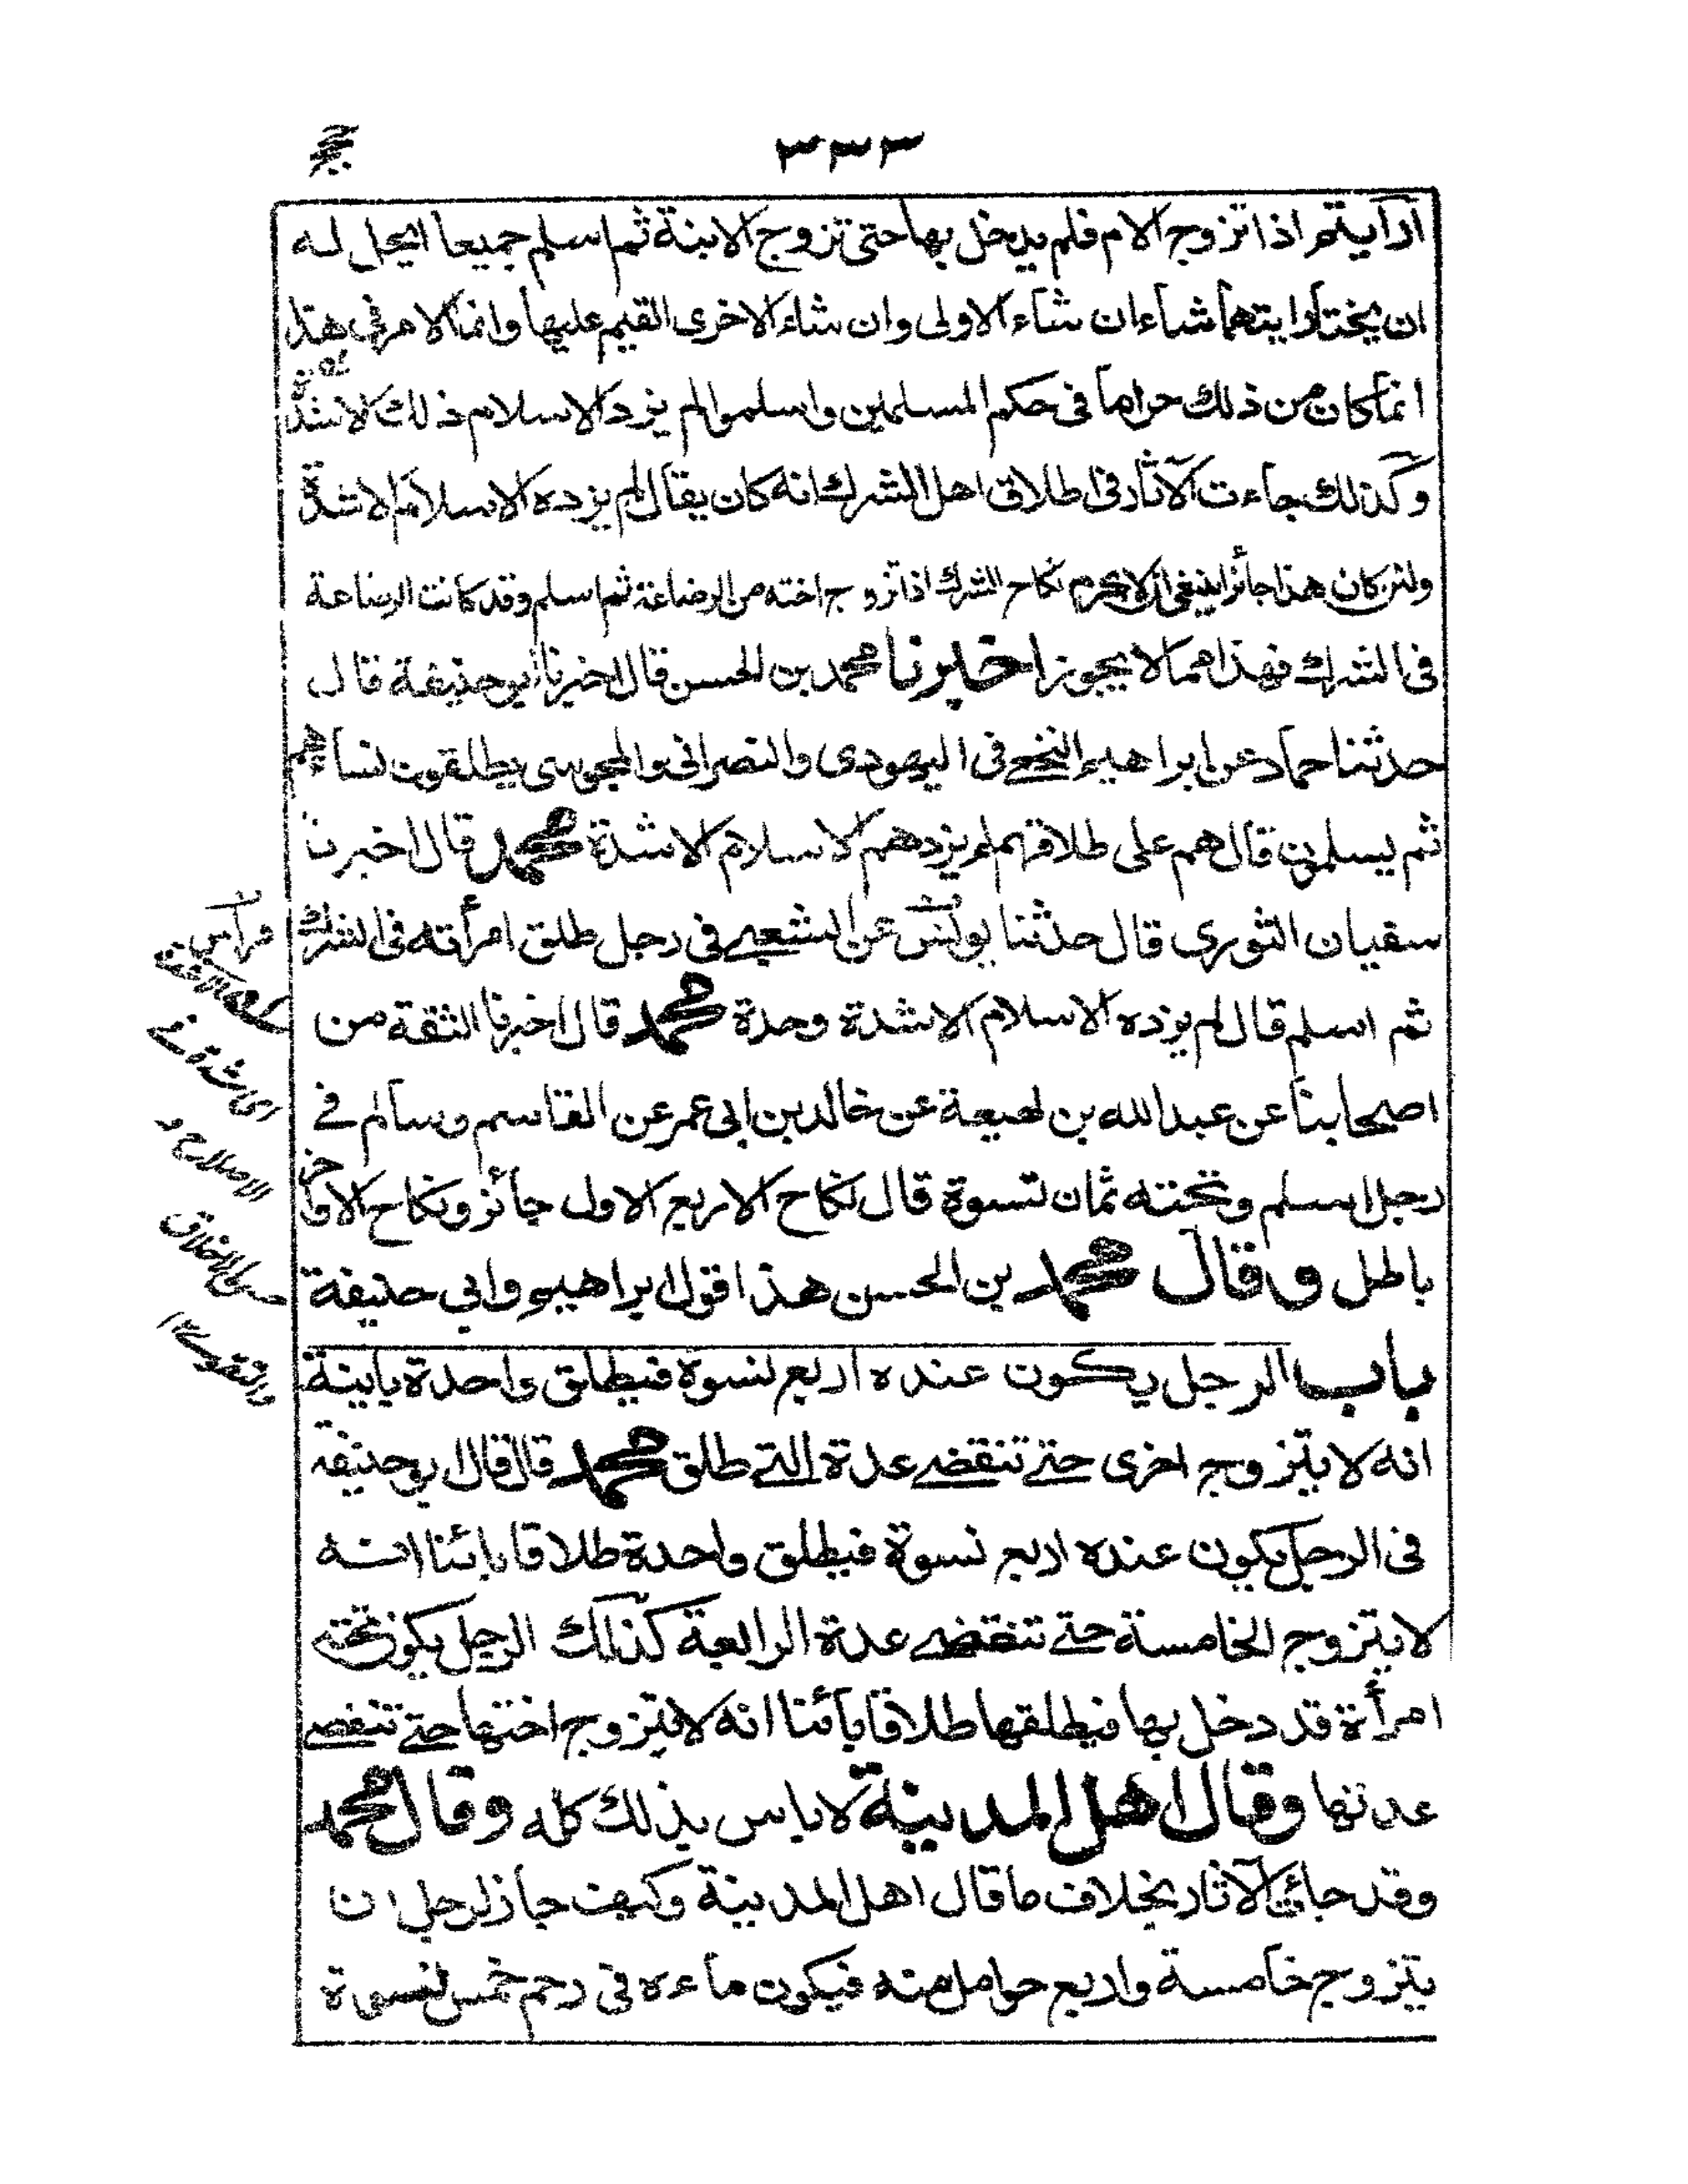 ٣٣٣
ارأيتم اذا تزوج الام فلم يدخل بها حتى تزوج الابنة ثم اسلم جميعا ايحل له
ان يختار ايتهما شاء ان شاء الاولى وان شاء الاخرى القيم عليها وانما الامر في هذا
انما كان من ذلك حراما فى حكم المسلمين واسلموا لم يزد الاسلام ذلك الا شدة
وكذلك جاءت الآثار فى طلاق اهل الشرك انه كان يقال لم يزده الاسلام الا شدة
ولئن كان هذا جائزا لينبغى ان لا يحرم نكاح الشرك اذا تزوج اخته من الرضاعة ثم اسلم وقد كانت الرضاعة
فى الشرك فهذا مما لا يجوز اخبرنا محمد بن الحسن قال اخبرنا ابو حنيفة قال
حدثنا حماد عن ابراهيم النخعى فى اليهودى والنصرانى والمجوسى يطلقون نساءهم
ثم يسلمون قال هم على طلاقهم لم يزدهم الاسلام الا شدة محمد قال اخبرنا
سفيان الثورى قال حدثنا يونس عن الشعبى فى رجل طلق امرأته فى الشرك
ثم اسلم قال لم يزده الاسلام الا شدة وحدة محمد قال اخبرنا الثقة من
اصحابنا عن عبد الله بن لهيعة عن خالد بن ابى عمر عن القاسم وسالم فى
رجل اسلم وتحته ثمان نسوة قال نكاح الاربع الاول جائز ونكاح الاواخر
باطل وقال محمد بن الحسن هذا قول ابراهيم وابي حنيفة
باب الرجل يكون عنده اربع نسوة فيطلق واحدة باينة
انه لا يتزوج اخرى حتى تنقضى عدة التى طلق محمد قال قال ابو حنيفة
فى الرجل يكون عنده اربع نسوة فيطلق واحدة طلاقا بائنا انه
لا يتزوج الخامسة حتى تنقضى عدة الرابعة كذلك الرجل يكون تحته
امرأة قد دخل بها فيطلقها طلاقا بائنا انه لا يتزوج اختها حتى تنقضى
عدتها وقال اهل المدينة لا باس بذلك كله وقال محمد
وقد جائت الآثار بخلاف ما قال اهل المدينة وكيف جاز لرجل ان
يتزوج خامسة واربع حوامل منه فيكون ماءه فى رحم خمس نسوة
فراس
اى شدة فى
الاصلاح و